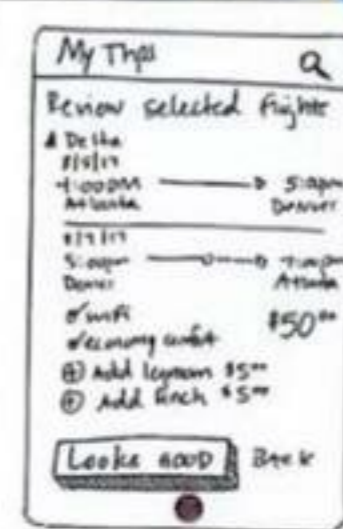 My Trips
Review selected flights
Delta
4:00pm 5:00pm
Atlanta Denver
5:00pm 7:00pm
Denver Atlanta
wifi $50⁰⁰
economy comfort
Add legroom $5⁰⁰
Add lunch $5⁰⁰
Looks GOOD Back